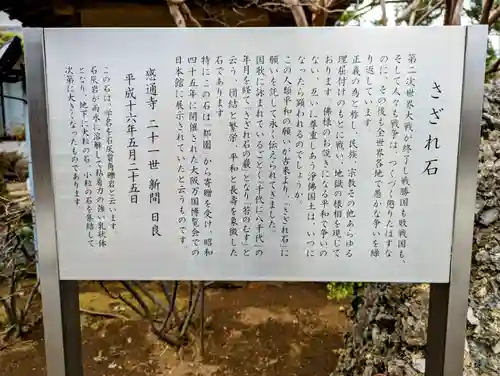 さざれ石
第二次世界大戦が終了し戦勝国も敗戦国も、
そして人々も戦争は、つくづく懲りたはずな
のに、その後も全世界各地で愚かな争いを繰
り返しています。
正義の為と称し、民族、宗教その他あらゆる
理屈付けのもとに戦い、地獄の様相を現じて
おります。佛様のお説きになる平和で争いの
ない、互いに尊重しあう浄佛国土は、いつに
なったら顕われるのでしょうか。
この人類平和の願いが古来より「さざれ石」に
願いを託して永く伝えられて来ました。
国歌に詠まれているごとく「千代に八千代」の
年月を経て「さざれ石の巌となり苔のむす」と
云う、団結と繁栄、平和と長寿を象徴した
石であります。
特に、この石は「都園」から寄贈を受け、昭和
四十五年に開催された大阪万国博覧会での
日本館に展示されていたと云うものです。
平成十六年五月二十五日
感通寺 二十一世 新間 日良
この石は、学名を石灰質角礫岩と云います。
石灰岩が雨水に溶解して粘着力の強い乳状体
となり、地下に大小の石、小粒の石を集結して
次第に大きくなったものであります。